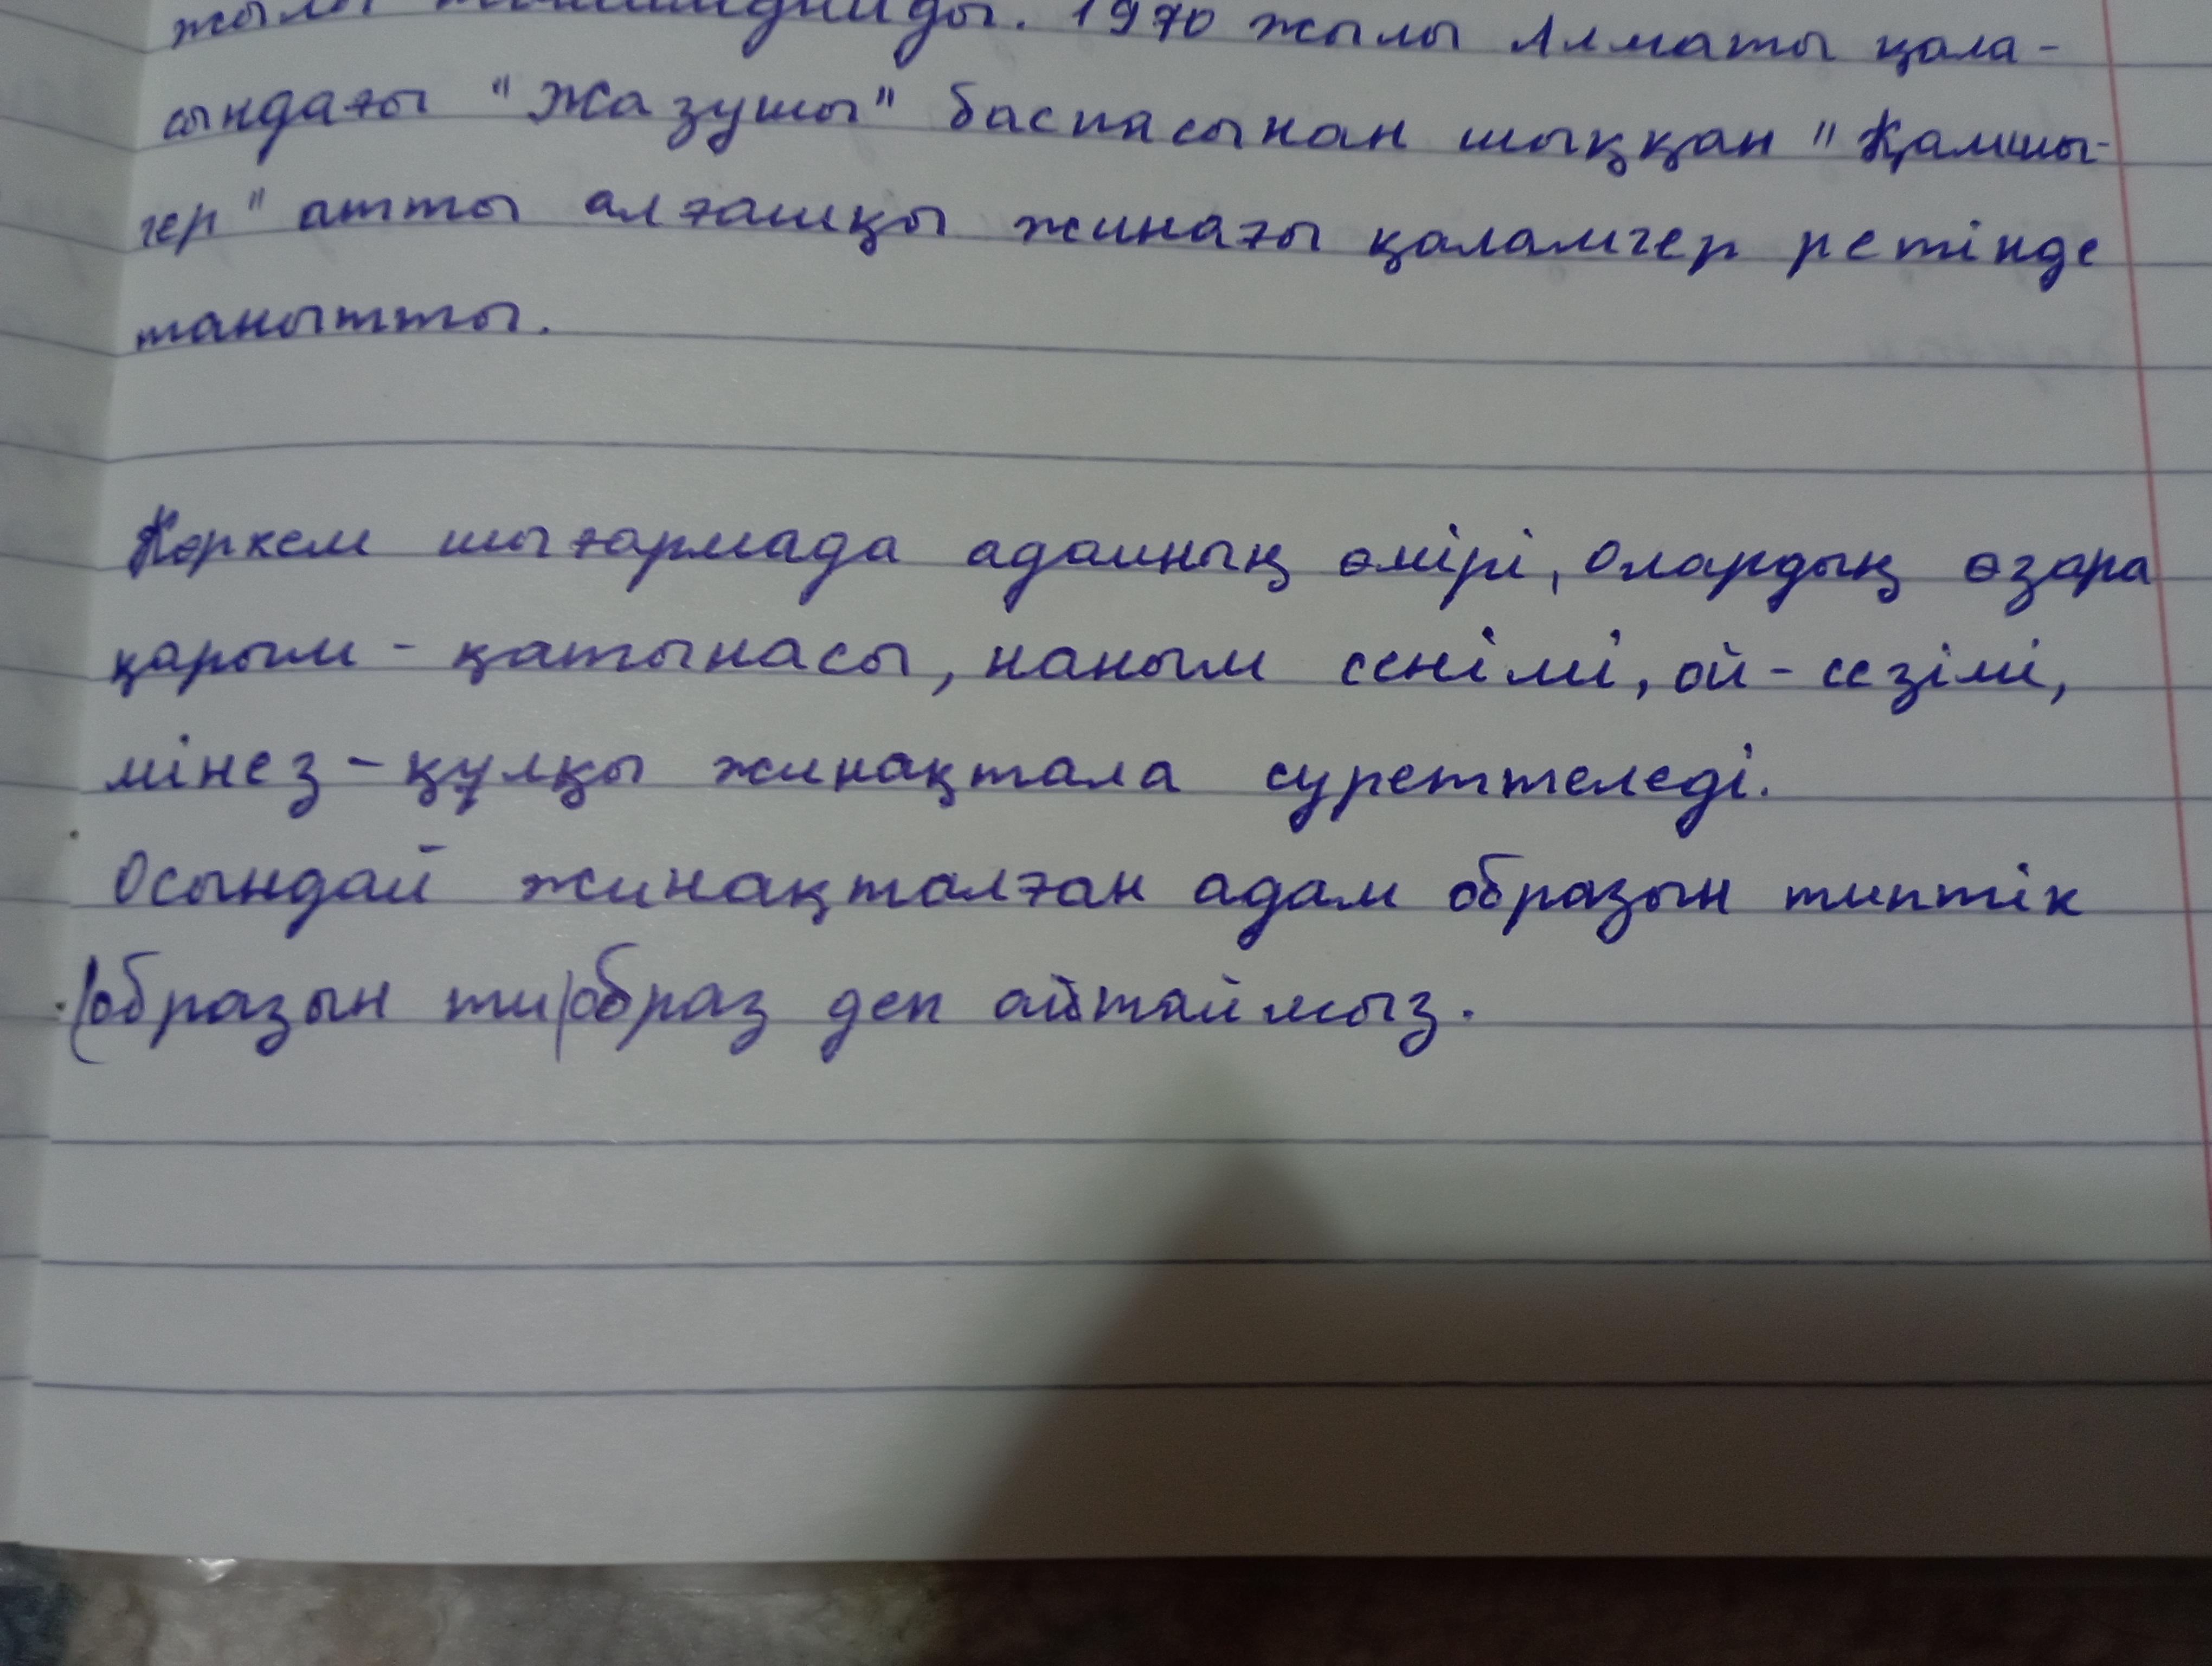 жылы 1970 жылы Алматы қала-
сындағы "Жазушы" баспасынан шыққан "Қамшы-
гер" атты алғашқы жинағы қаламгер ретінде
танытты.
Көркем шығармада адамның өмірі, олардың өзара
қарым - қатынасы, наным сенімі, ой - сезімі,
мінез - құлқы жинақтала суреттеледі.
Осындай жинақталған адам образын типтік
(образын ти) образ деп айтаймыз.